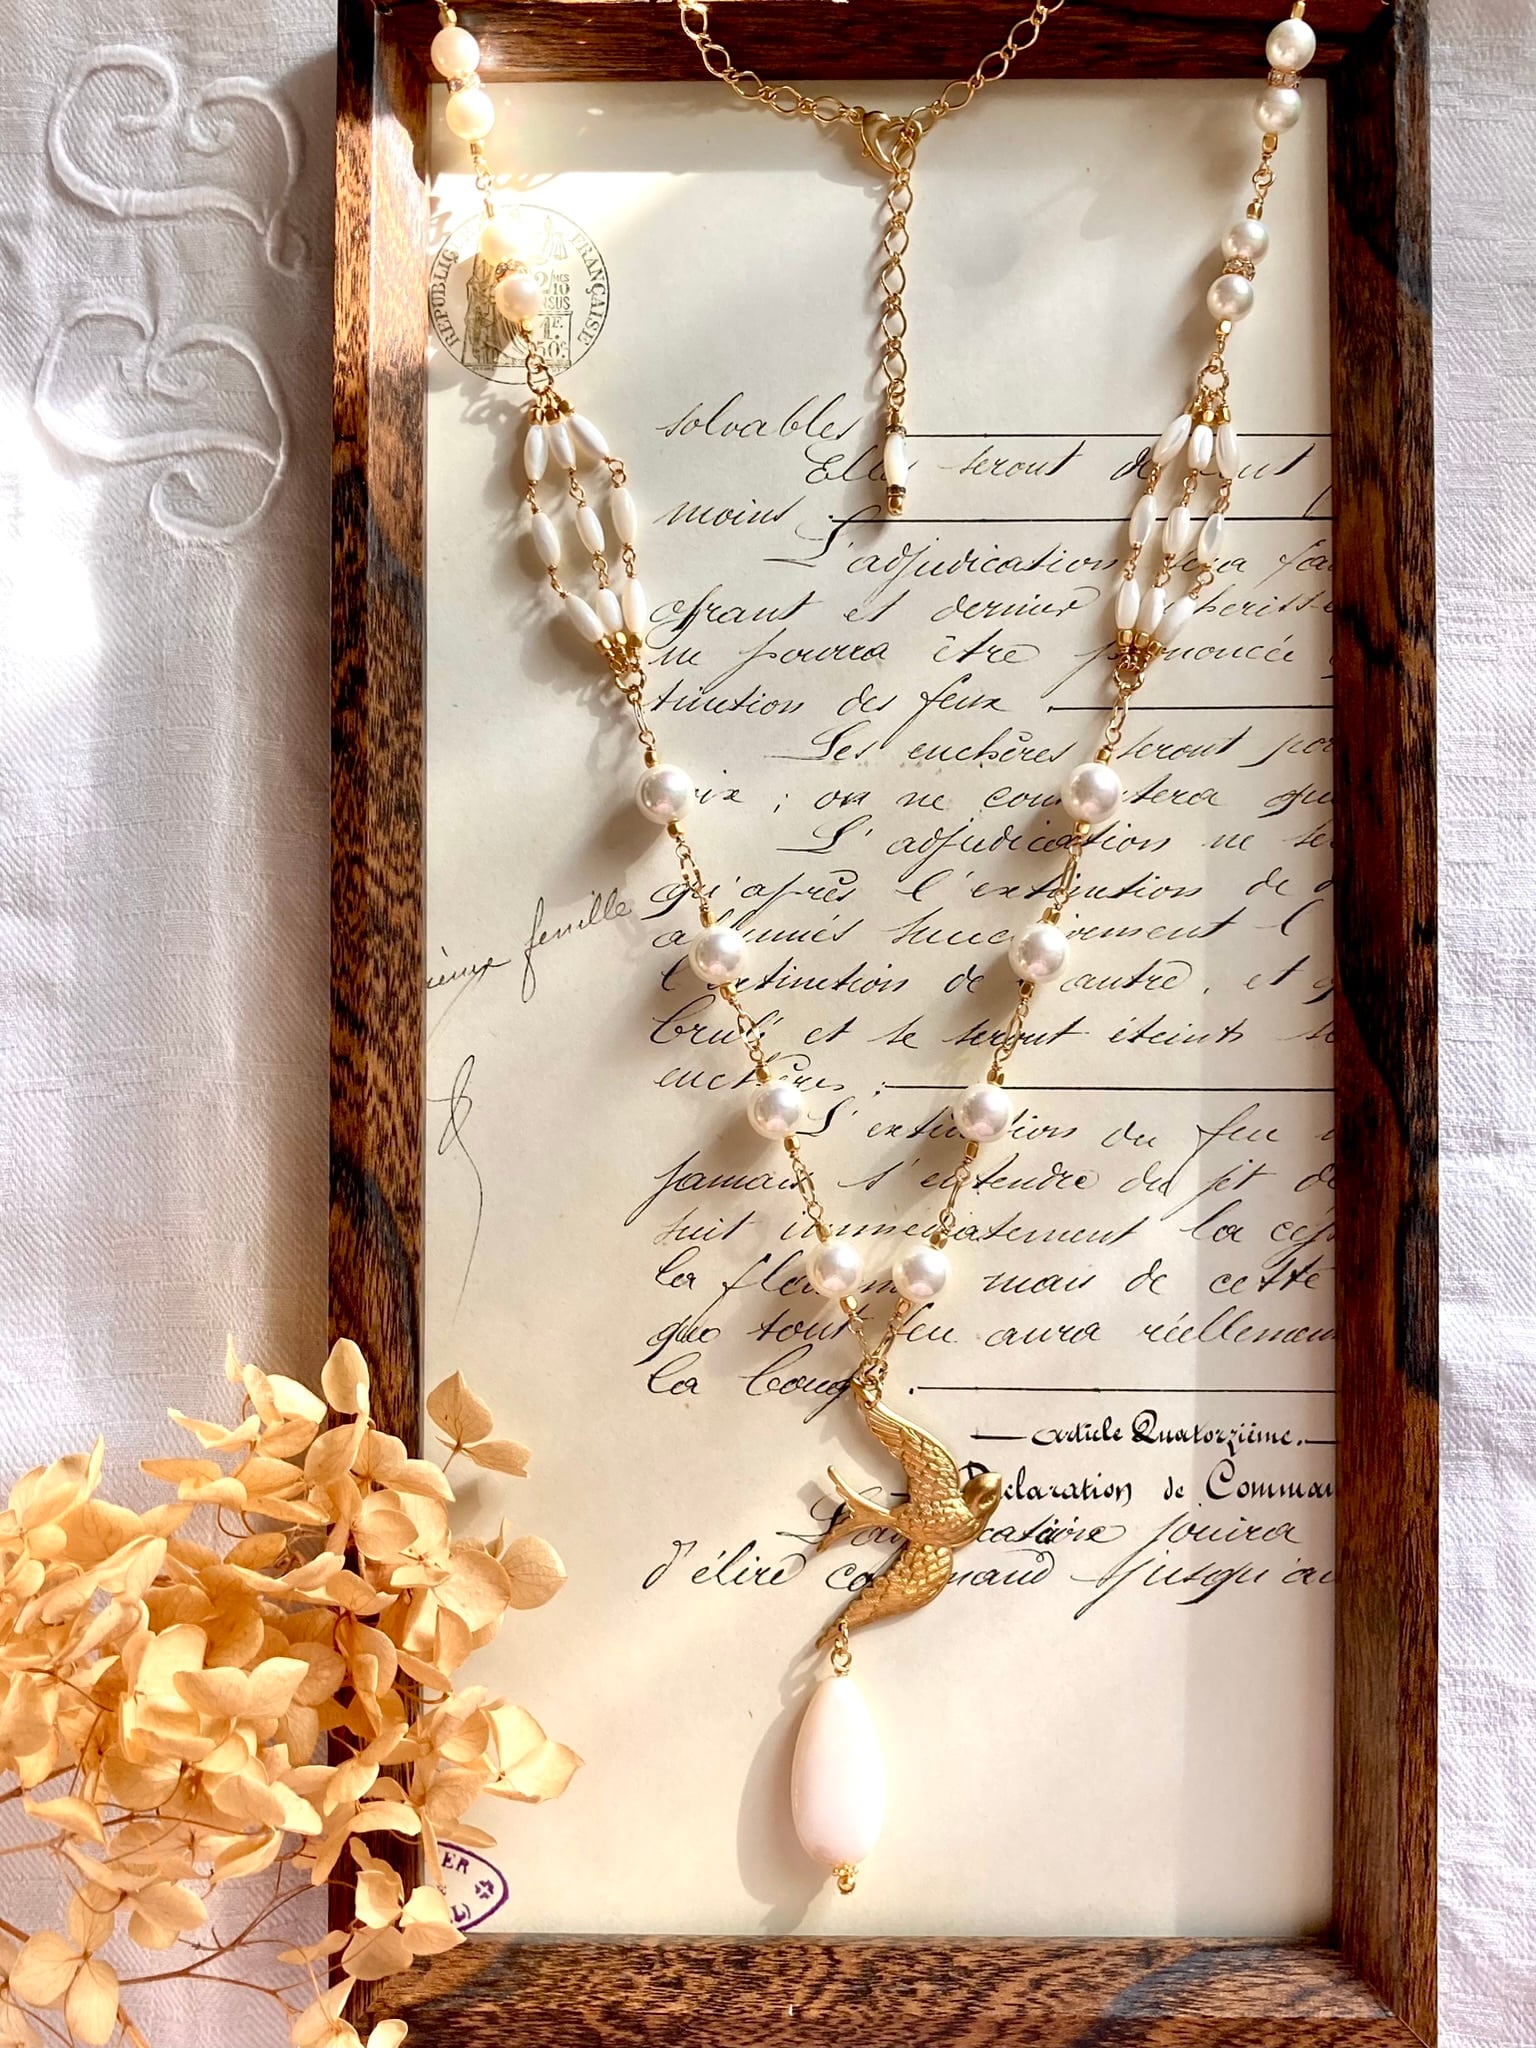 RÉPUBLIQUE FRANÇAISE
2/10
1F
50c
solvables
Elles seront de
moins
L'adjudication sera
offrant et dernier
ne pourra être prononcée
tinction des feux
Les enchères seront
; on ne comptera que
L'adjudication ne
qu'après l'extinction de
allumés successivement l
ième feuille
l'extinction de l'autre, et q
brulé et se seront éteints
enchères ;
L'extinction du feu
jamais s'entendre du jet de
suit immédiatement la
la flamme mais de cette
que tout feu aura réellement
la
Article Quatorzième.
Déclaration de Comman
jouira
d'élire command jusqu'au
ER